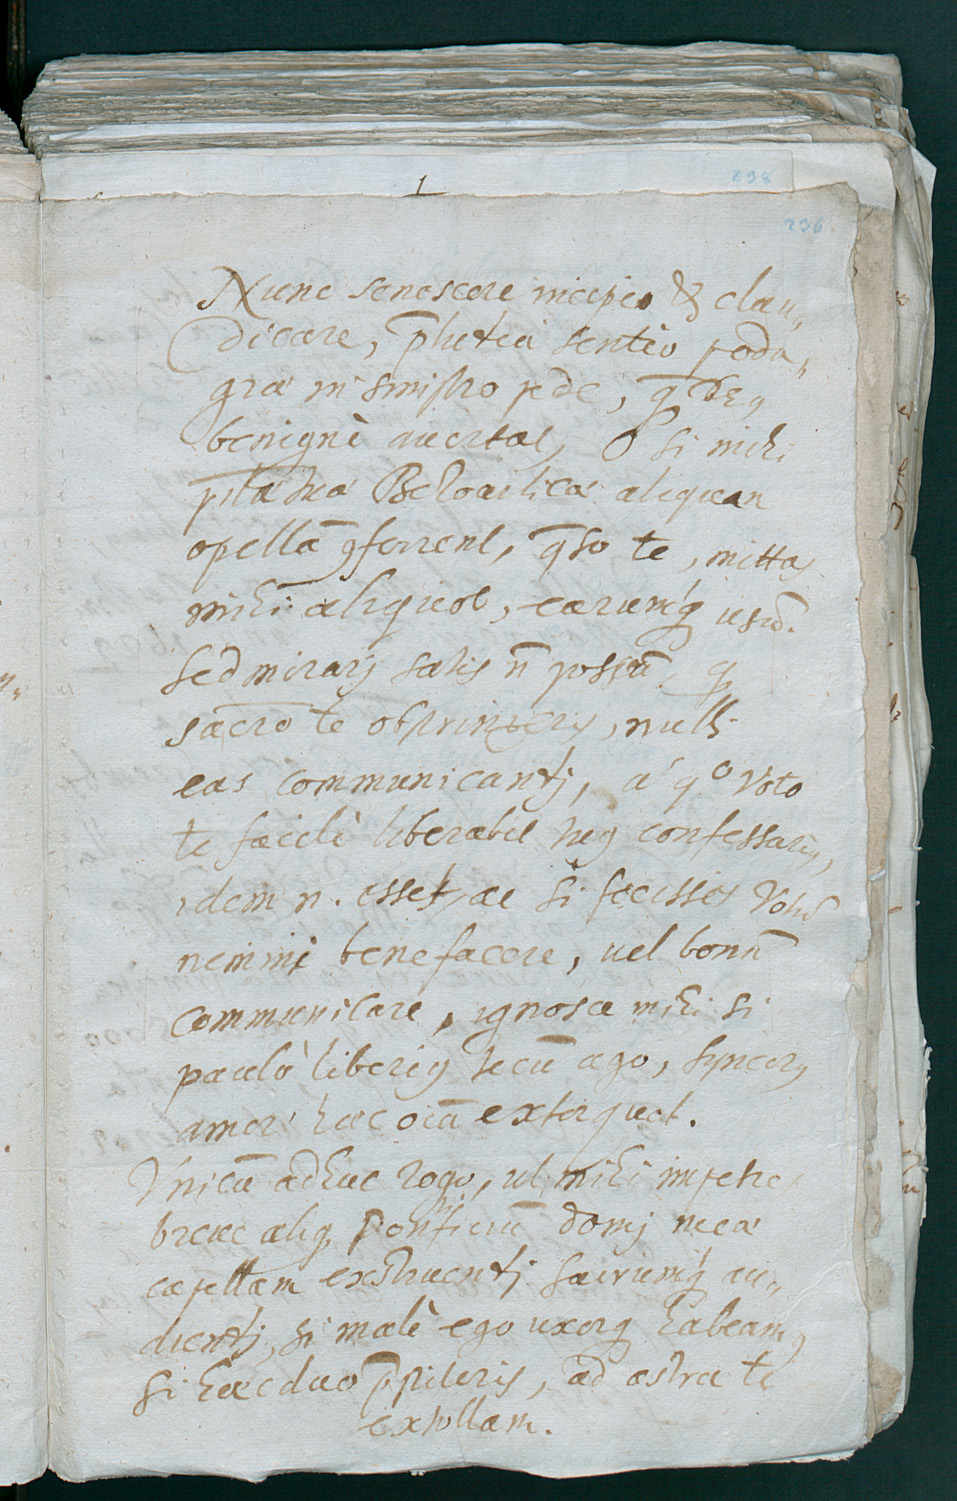 1
238
236.
Nunc senescere incipio & clau„
dicare, p̄ludia sentio poda„
græ in sinistro pede, q̄ Deꝰ
benignè auertat, O si mihi
pilulæ Bezoarticæ aliquam
opellā ꝯferrent, q̄so te, mittas
mihi aliquot, earumq́ usū.
Sed mirarj satis n̄ possū, q
sacro te obstrinxeris, nullj
eas communicantj, á qo voto
te facilè liberabit tuꝰ confessariꝰ,
idem n. esset, ac si fecisses votū
nemini benefacere, uel bonū
communicare, ignosce mihi si
paulò liberiꝰ tecū ago, syncerꝰ
amor hæc oīa extorquet.
Vnicū adhuc rogo, ut mihi impetres
breue aliq̄ pontificiū domj meæ
capellam exstruentj sacrumq́ au„
dientj, si malè ego uxorq habeamꝰ
si hæc duo p̄stiteris, ad astra te
extollam.